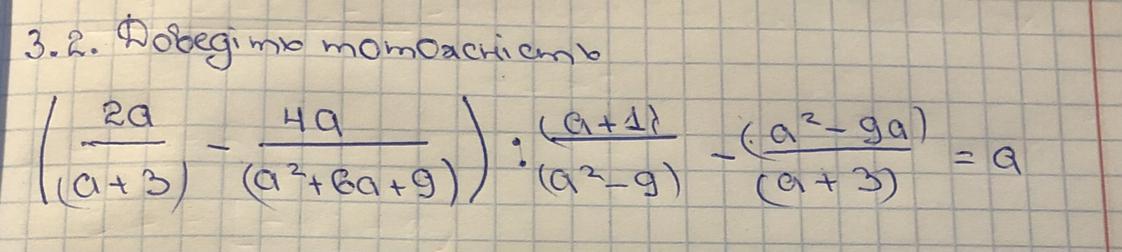 3.2. Доведіть тотожність
(2a/(a+3) - 4a/(a²+6a+9)) : (a+1)/(a²-9) - (a²-9a)/(a+3) = a